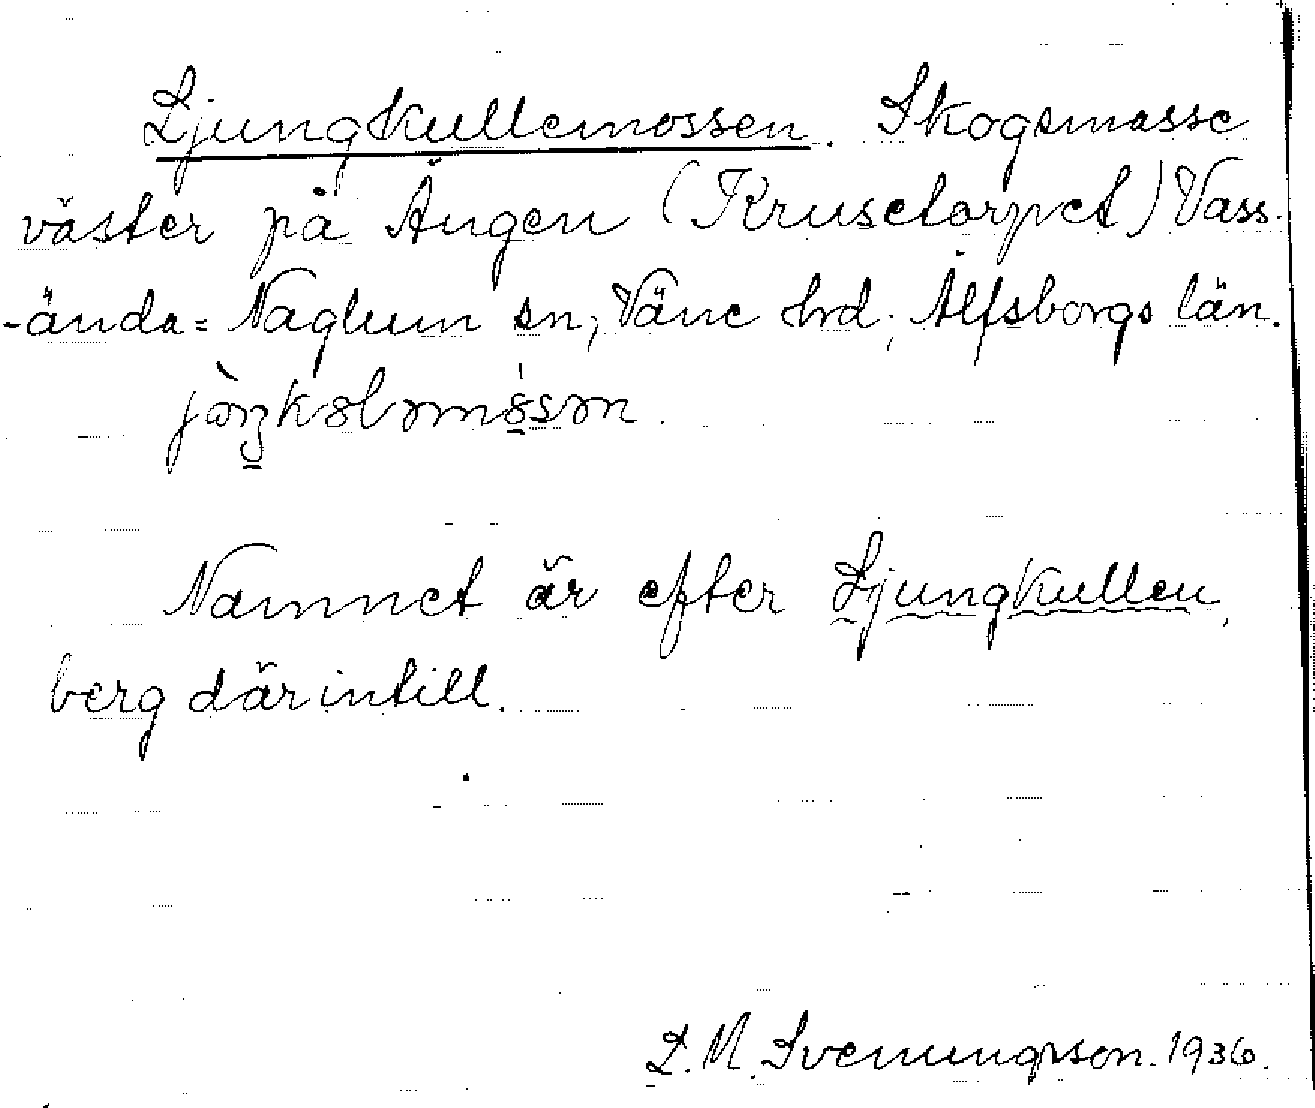 Ljungkullemossen. Skogsmosse
väster på Ängen (Krusetorpet) Vass-
-ända=Naglum sn; Väne hrd; Älfsborgs län.
Namnet är efter Ljungkullen,
berg därintill.
L. M. Svenungsson. 1936.